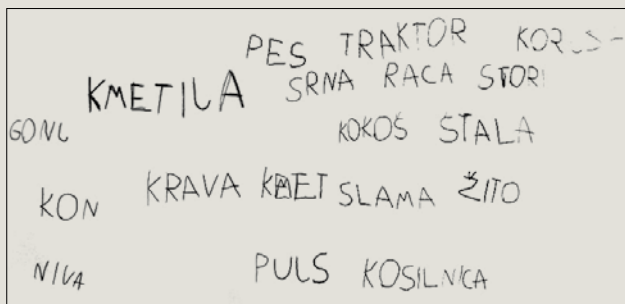 PES TRAKTOR
KMETILA SRNA RACA STORI
GONL KOKOŠ STALA
KON KRAVA KMET SLAMA ŽITO
NIVA PULS KOSILNICA